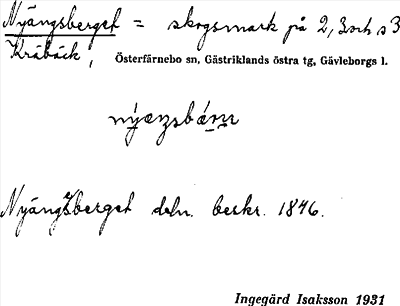 Nyängsberget = skogsmark på 2, 3 och s 3
Kråbäck, Österfärnebo sn, Gästriklands östra tg, Gävleborgs l.
Nyängsberget deln. beskr. 1846.
Ingegärd Isaksson 1931